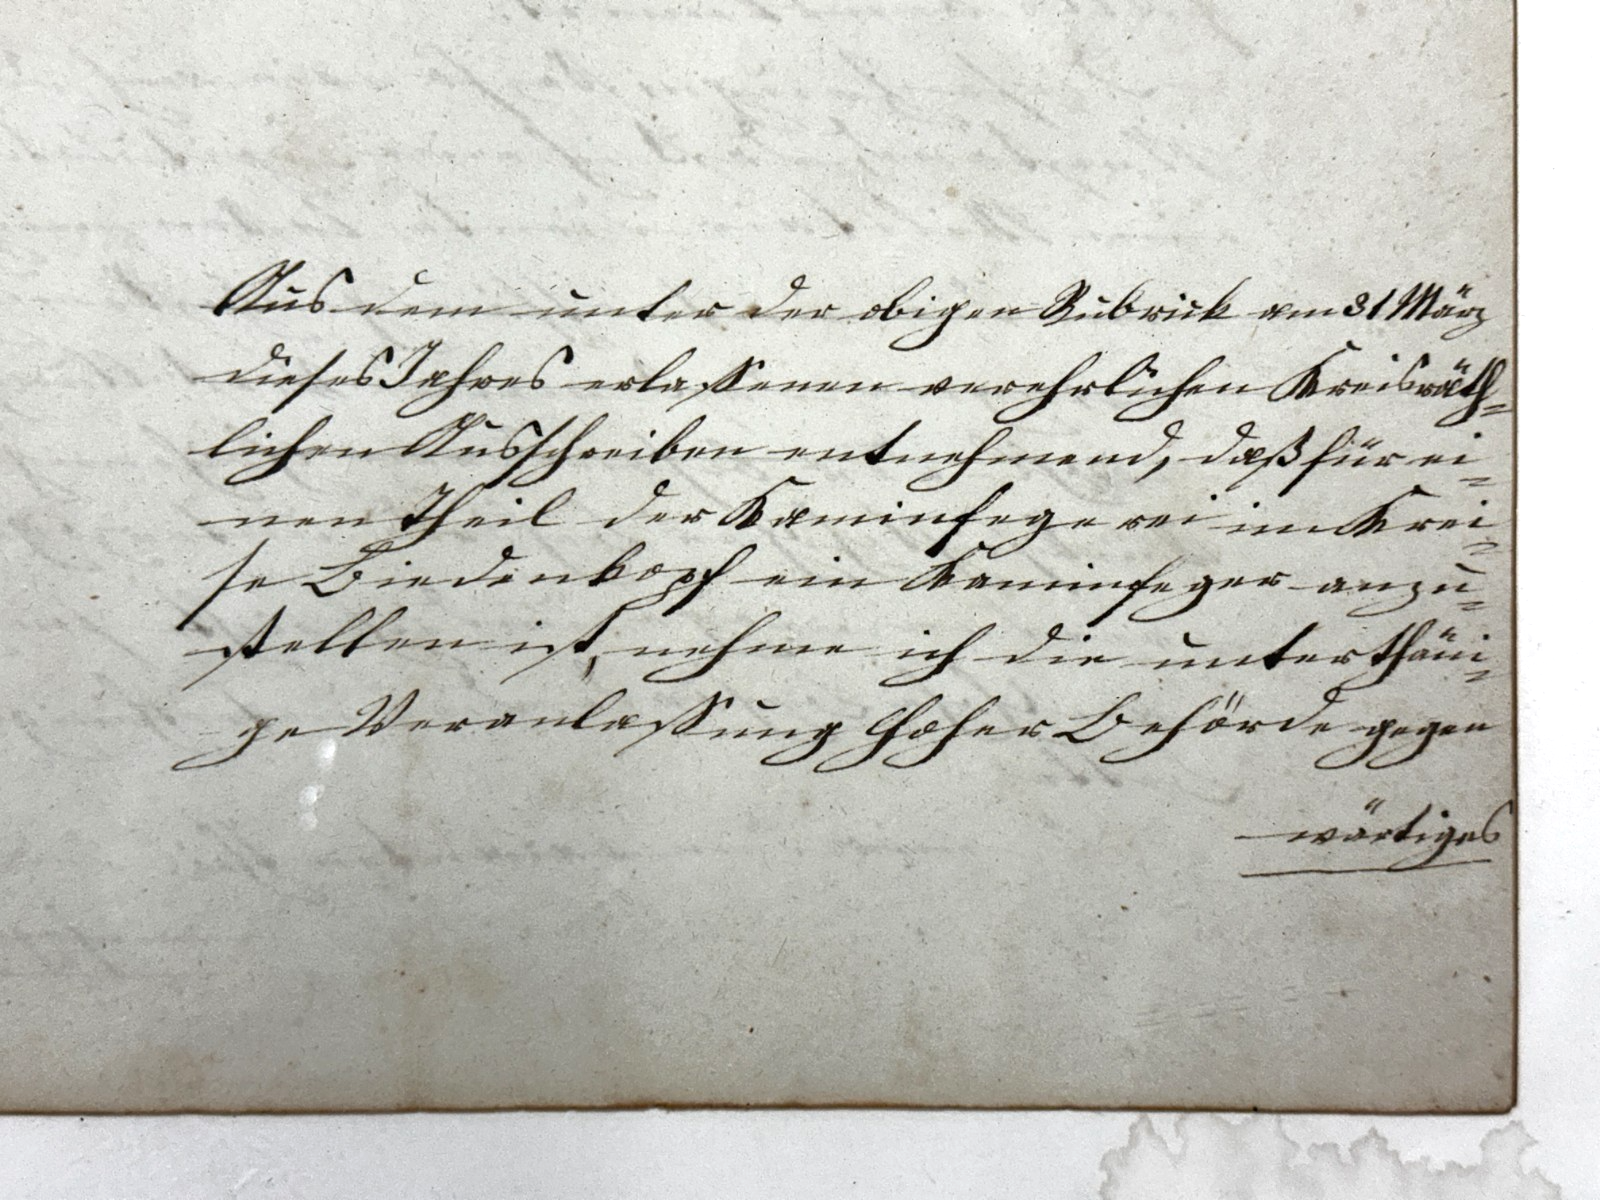 Aus dem unter der obigen Rubrick am 31 März
dieses Jahres erlassenen verehrlichen Kreisräth-
lichen Ausschreiben entnehmend, daß für ei-
nen Theil der Kaminfegerei im Krei-
se Biedenkopf ein Kaminfeger anzu-
stellen ist, nehme ich die unterthäni-
ge Veranlassung hoher Behörde gegen
wärtiges